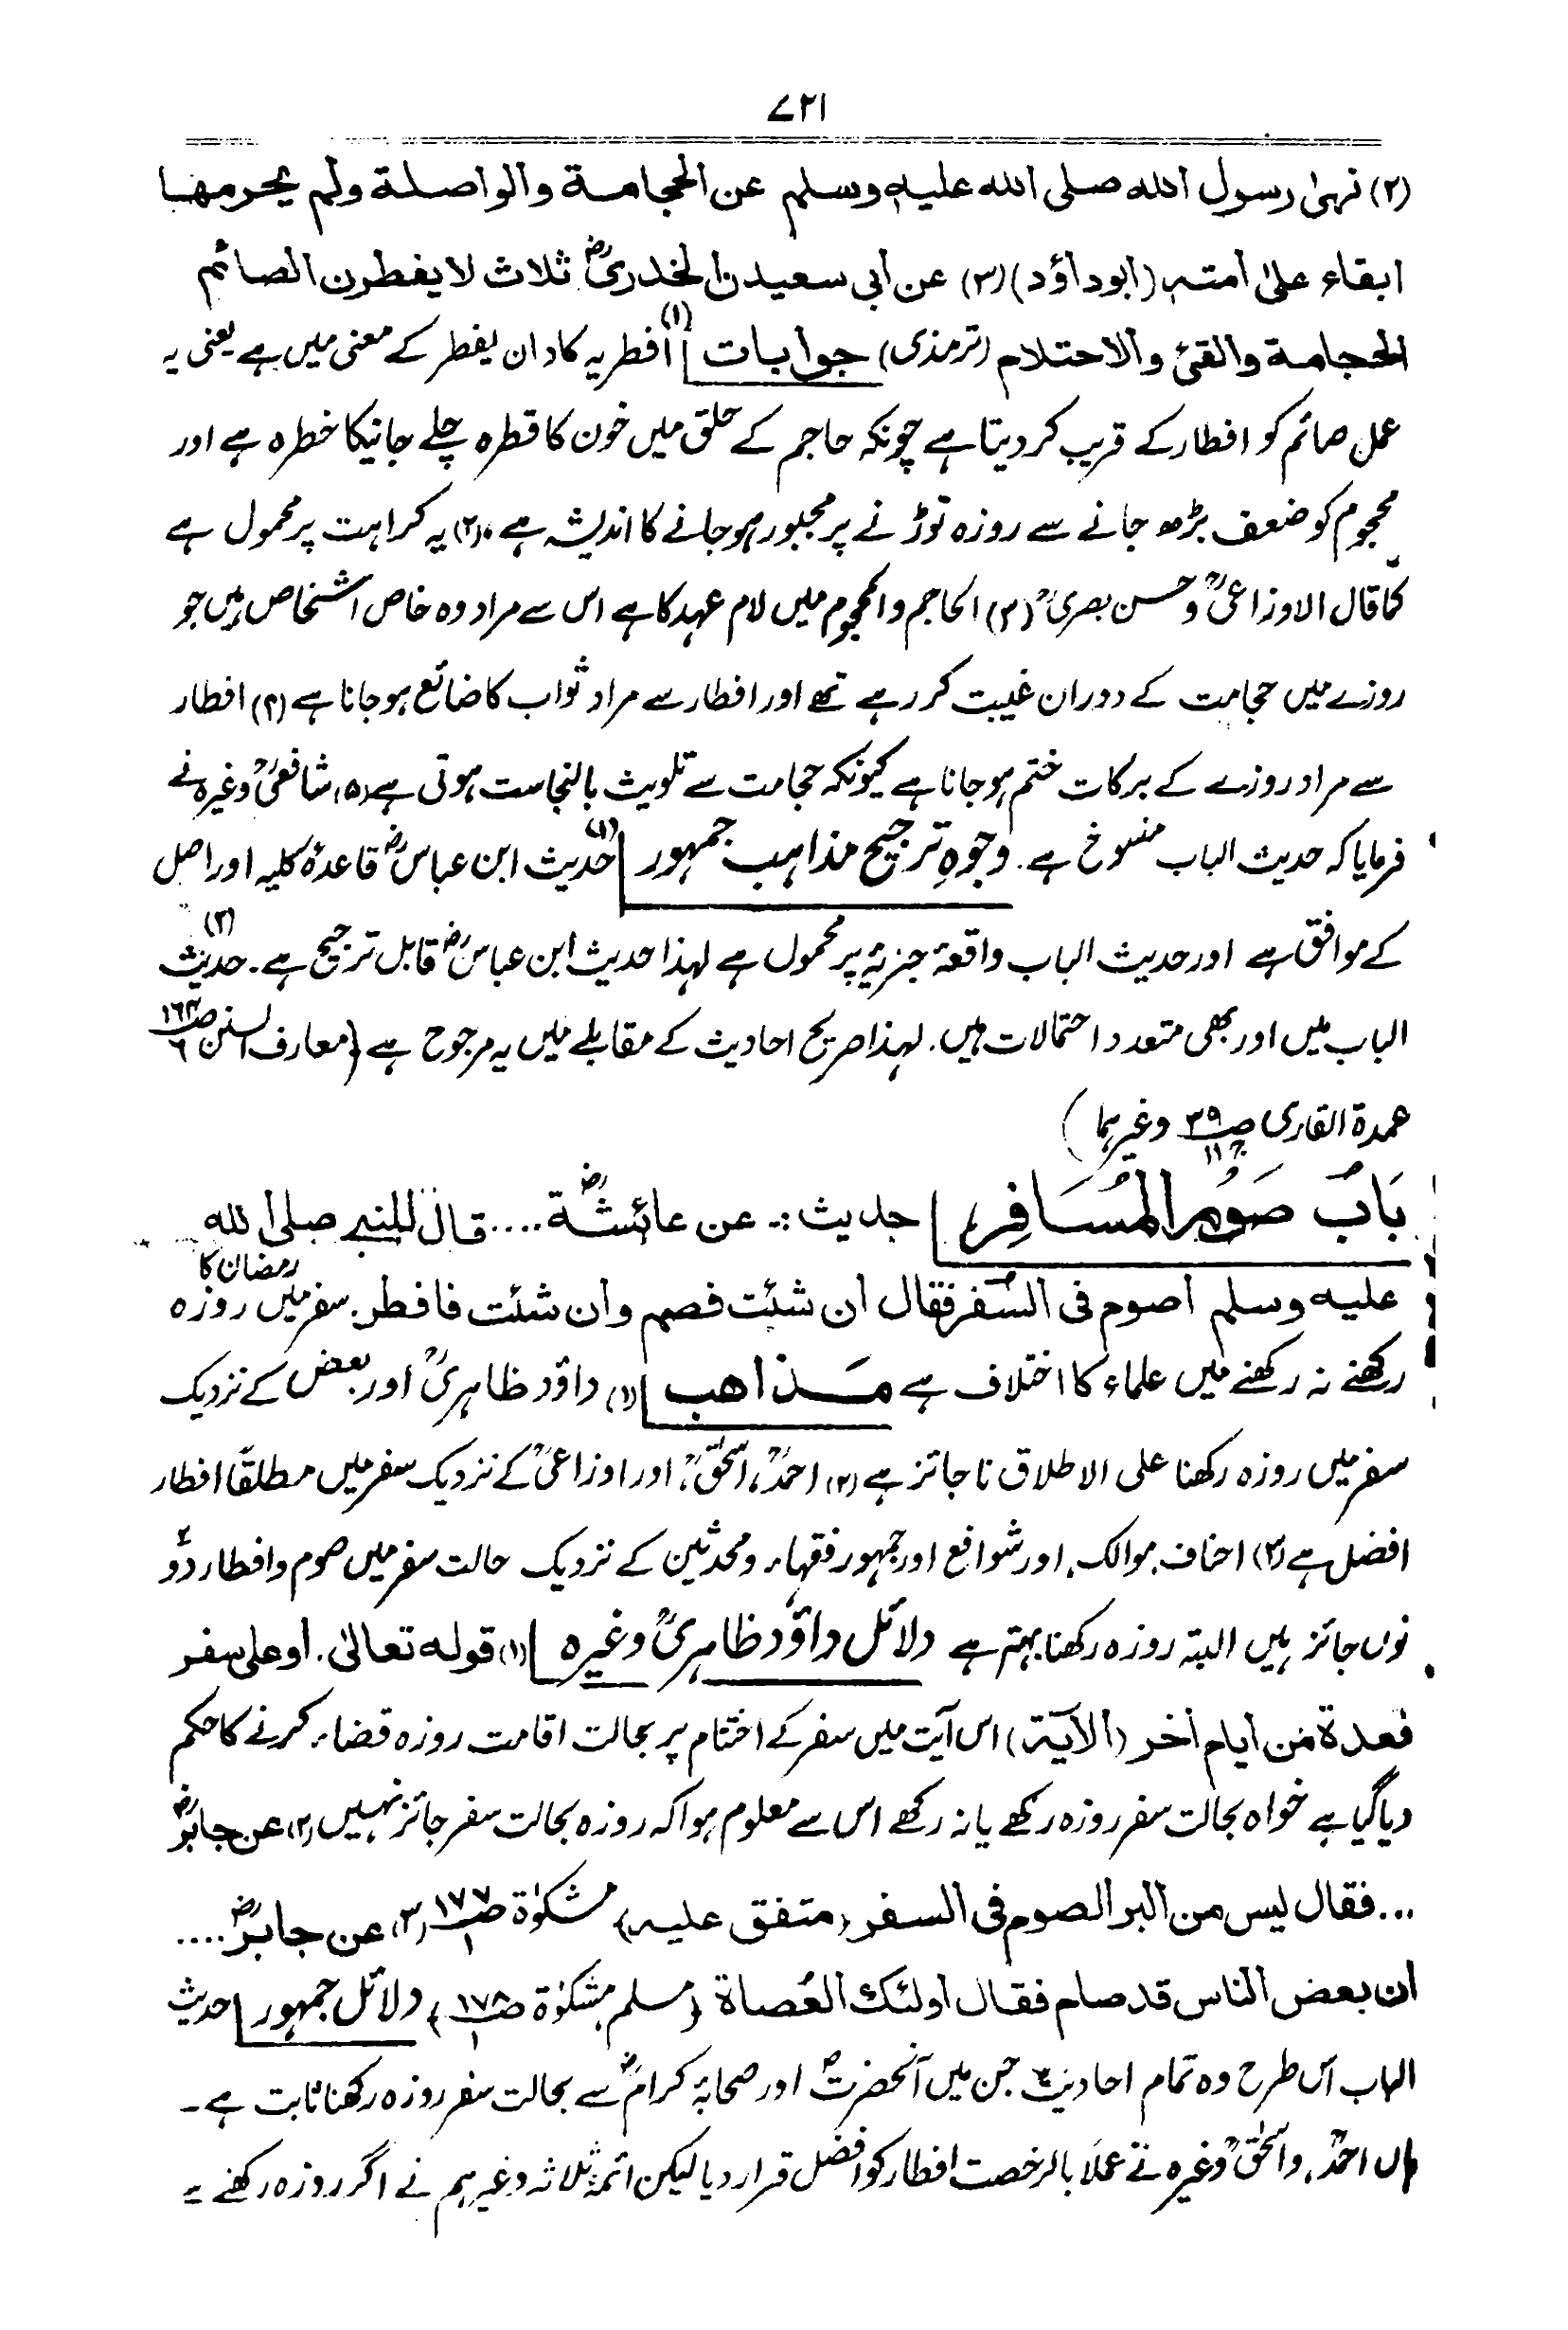 ۷۲۱
(۲) نہیٰ رسول الله صلی الله علیہ وسلم عن الحجامة والواصلة ولم یحرمها
ابقاء علیٰ امتہ (ابوداؤد) (۳) عن ابی سعیدن الخدریؓ ثلاث لا یفطرن الصائم
الحجامة والقئ والاحتلام (ترمذی) جوابات (۱) افطر یہ کاد ان یفطر کے معنی میں ہے یعنی یہ
عمل صائم کو افطار کے قریب کر دیتا ہے چونکہ حاجم کے حلق میں خون کا قطرہ چلے جانیکا خطرہ ہے اور
محجوم کو ضعف بڑھ جانے سے روزہ توڑنے پر مجبور ہو جانے کا اندیشہ ہے ۔ (۲) یہ کراہت پر محمول ہے
کما قال الاوزاعیؒ و حسن بصریؒ (۳) الحاجم والمحجوم میں لام عہد کا ہے اس سے مراد وہ خاص اشخاص ہیں جو
روزے میں حجامت کے دوران غیبت کر رہے تھے اور افطار سے مراد ثواب کا ضائع ہو جانا ہے (۴) افطار
سے مراد روزے کے برکات ختم ہو جانا ہے کیونکہ حجامت سے تلویث بالنجاست ہوتی ہے (۵) شافعیؒ وغیرہ نے
فرمایا کہ حدیث الباب منسوخ ہے ۔ وجوہِ ترجیح مذاہب جمہور (۱) حدیث ابن عباسؓ قاعدۂ کلیہ اور اصل
کے موافق ہے اور حدیث الباب واقعۂ جزئیہ پر محمول ہے لہذا حدیث ابن عباسؓ قابل ترجیح ہے ۔ (۲) حدیث
الباب میں اور بھی متعدد احتمالات ہیں ۔ لہذا صریح احادیث کے مقابلے میں یہ مرجوح ہے (معارف السنن ص۱۶۴ ۶
عمدة القاری ص۳۹ ج۱۱ وغیرہما)
بَابُ صَوْمِ الْمُسَافِرِ حدیث :۔ عن عائشةؓ .... قال للنبی صلی الله
علیہ وسلم اصوم فی السفر فقال ان شئت فصم وان شئت فافطر ۔ سفر میں رمضان کا روزہ
رکھنے نہ رکھنے میں علماء کا اختلاف ہے مَذاهب (۱) داؤد ظاہریؒ اور بعض کے نزدیک
سفر میں روزہ رکھنا علی الاطلاق ناجائز ہے (۲) احمدؒ ، اسحٰقؒ ، اور اوزاعیؒ کے نزدیک سفر میں مطلقًا افطار
افضل ہے (۳) احناف ، موالک ، اور شوافع اور جمہور فقہاء و محدثین کے نزدیک حالت سفر میں صوم و افطار دو
نوں جائز ہیں البتہ روزہ رکھنا بہتر ہے دلائل داؤد ظاہریؒ وغیرہ (۱) قولہ تعالیٰ ۔ او علی سفر
فعدة من ایام اخر (الآیة) اس آیت میں سفر کے اختتام پر بحالت اقامت روزہ قضاء کرنے کا حکم
دیا گیا ہے خواہ بحالت سفر روزہ رکھے یا نہ رکھے اس سے معلوم ہوا کہ روزہ بحالت سفر جائز نہیں (۲) عن جابرؓ
... فقال لیس من البر الصوم فی السفر (متفق علیہ) مشکوٰة ص۱۷۷ ۱ (۳) عن جابرؓ ....
ان بعض الناس قد صام فقال اولئك العُصاة (مسلم ، مشکوٰة ص۱۷۸ ۱) دلائل جمہور حدیث
الباب اس طرح وہ تمام احادیث جن میں آنحضرتؐ اور صحابۂ کرامؓ سے بحالت سفر روزہ رکھنا ثابت ہے ۔
ہاں احمدؒ ، و اسحٰقؒ وغیرہ نے عملًا بالرخصت افطار کو افضل قرار دیا لیکن ائمۂ ثلاثہ وغیرہم نے اگر روزہ رکھنے